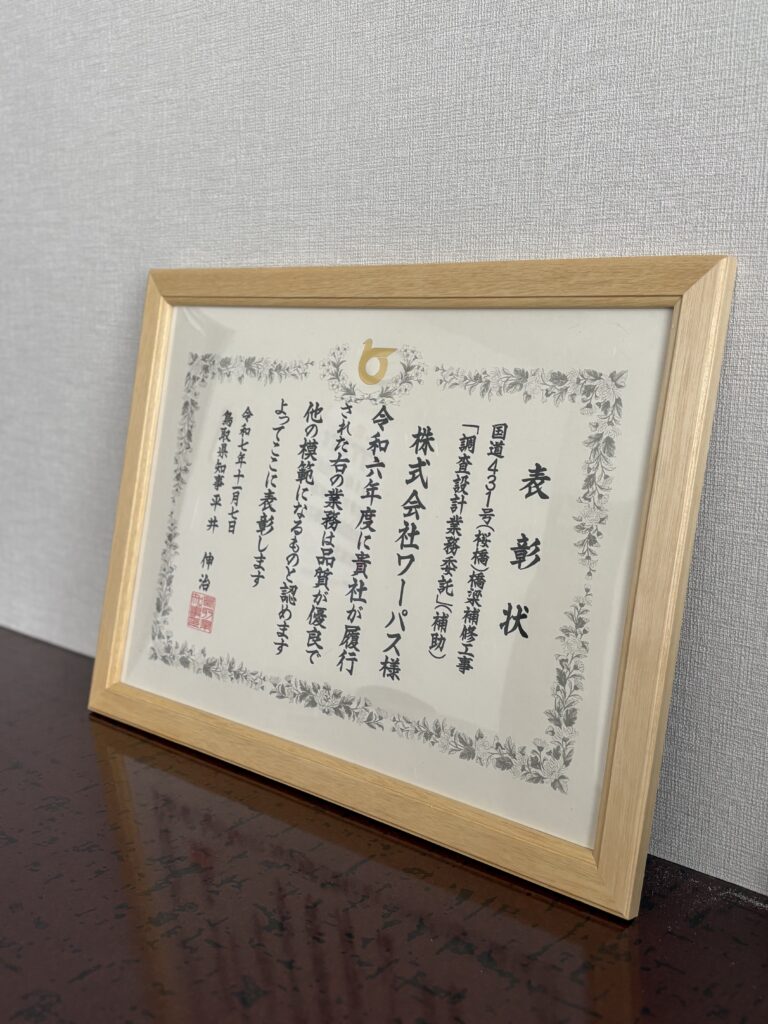 表彰状
国道431号(桜橋)橋梁補修工事
「調査設計業務委託」(補助)
株式会社ワーパス様
令和六年度に貴社が履行
された右の業務は品質が優良で
他の模範になるものと認めます
よってここに表彰します
令和七年十一月七日
鳥取県知事平井伸治